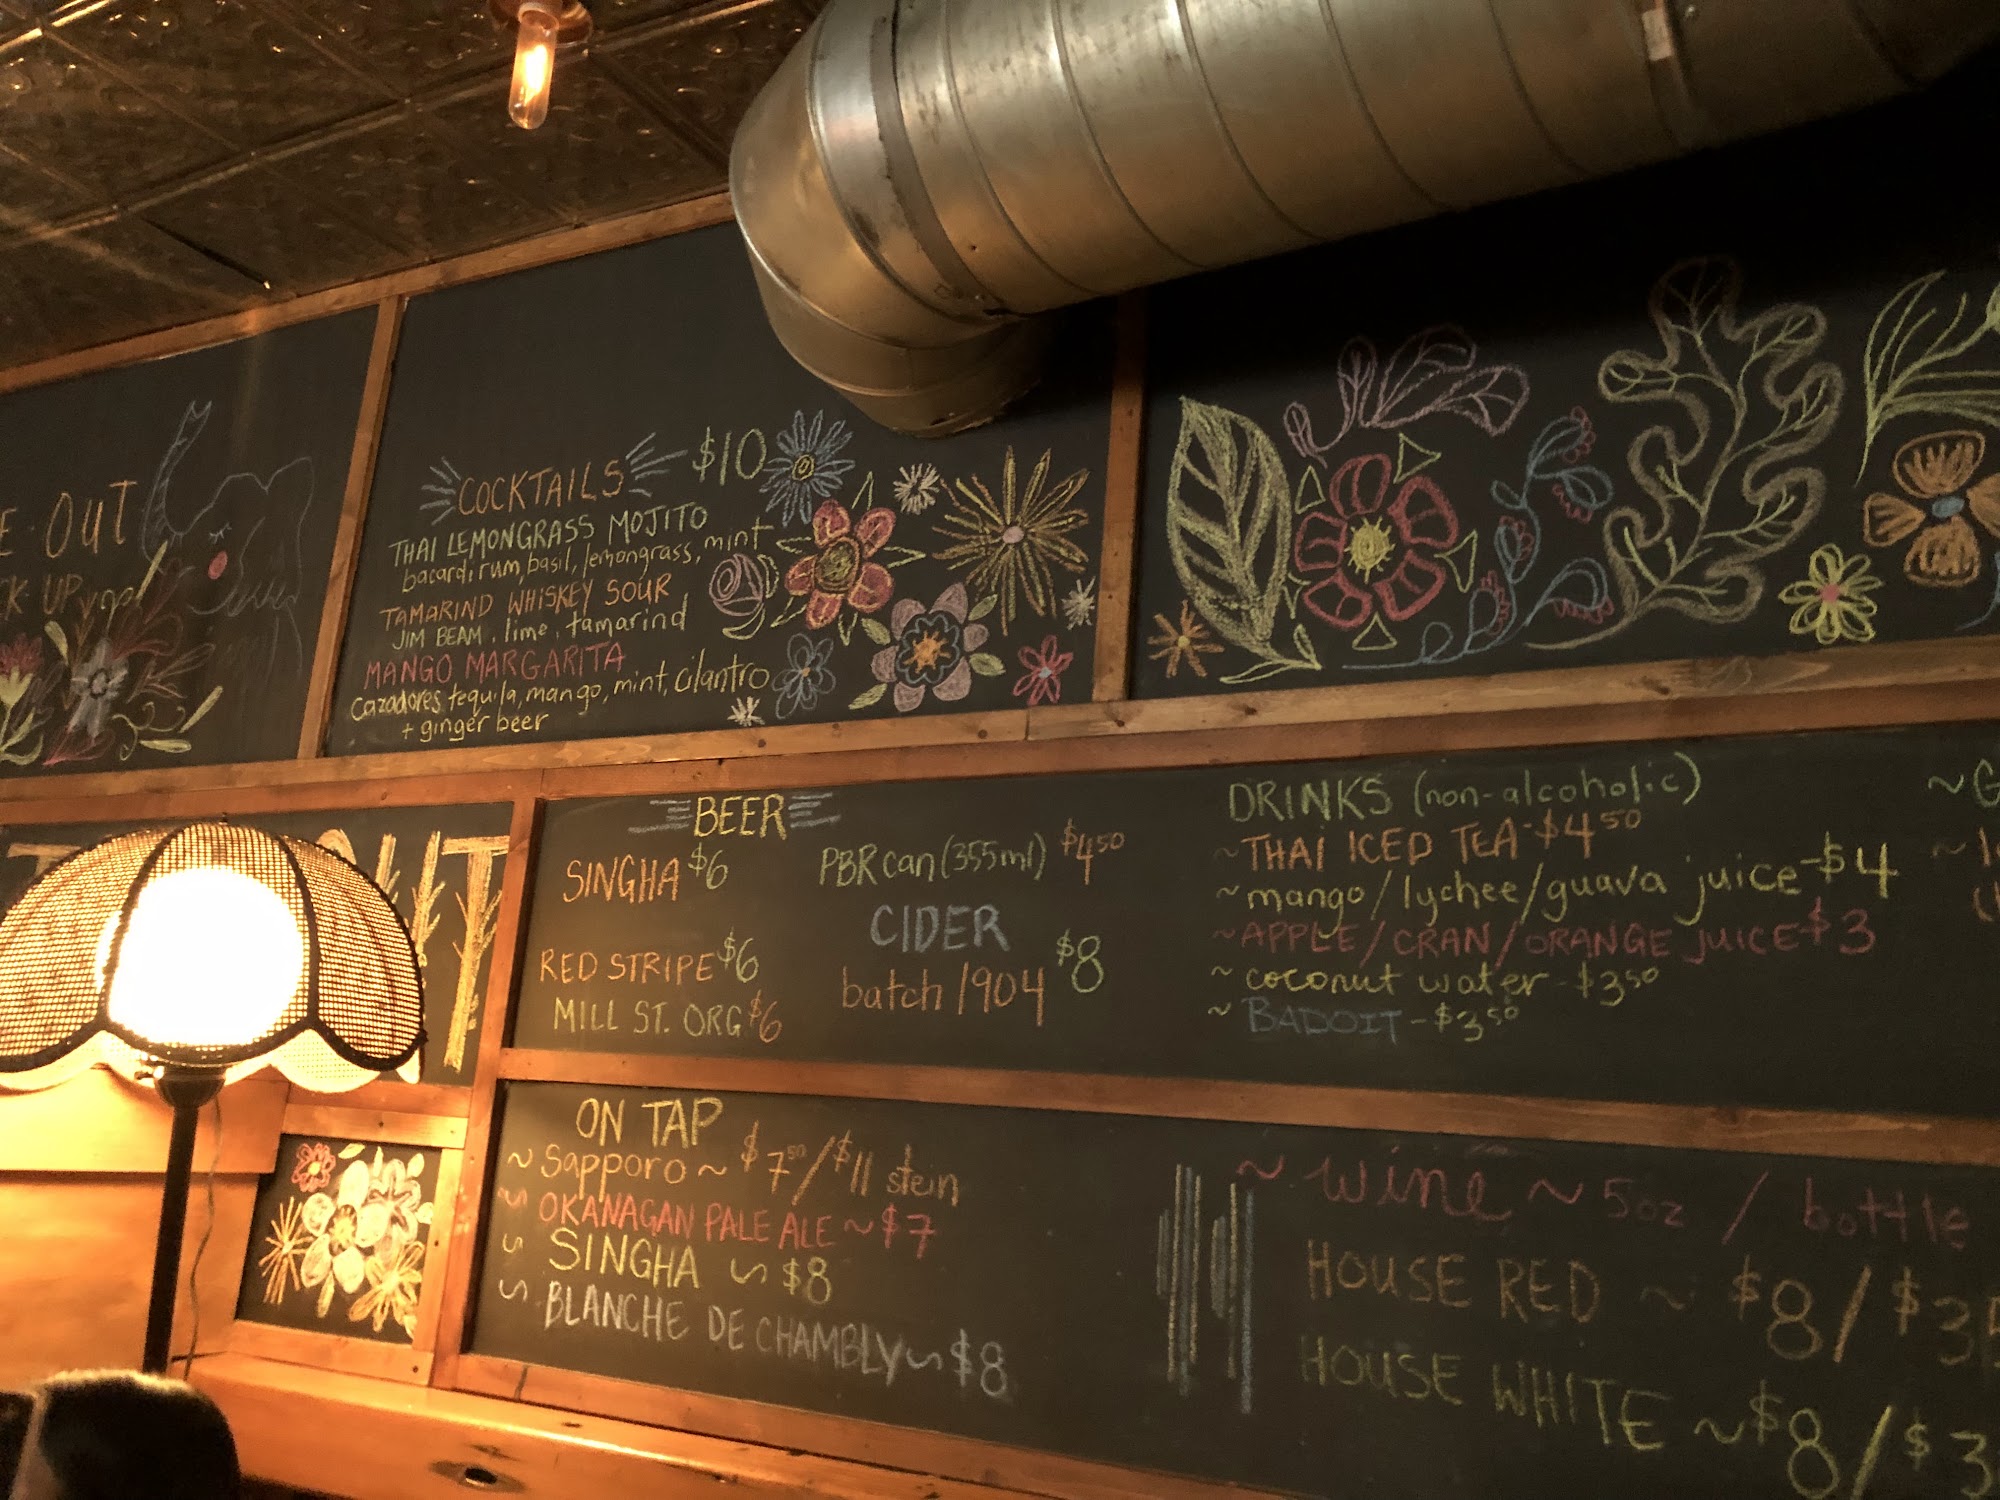 OUT
UP
COCKTAILS $10
THAI LEMONGRASS MOJITO
bacardi rum, basil, lemongrass, mint
TAMARIND WHISKEY SOUR
JIM BEAM, lime, tamarind
MANGO MARGARITA
cazadores tequila, mango, mint, cilantro
+ ginger beer
BEER
SINGHA $6
RED STRIPE $6
MILL ST. ORG $6
PBR can (355ml) $4.50
CIDER
batch 1904 $8
DRINKS (non-alcoholic)
~THAI ICED TEA-$4.50
~mango/lychee/guava juice-$4
~APPLE/CRAN/ORANGE JUICE-$3
~coconut water-$3.50
~BADOIT-$3.50
ON TAP
~Sapporo~ $7.50/$11 stein
~OKANAGAN PALE ALE~$7
~SINGHA ~ $8
~BLANCHE DE CHAMBLY~$8
~wine~ 5oz / bottle
HOUSE RED ~ $8/
HOUSE WHITE ~$8/